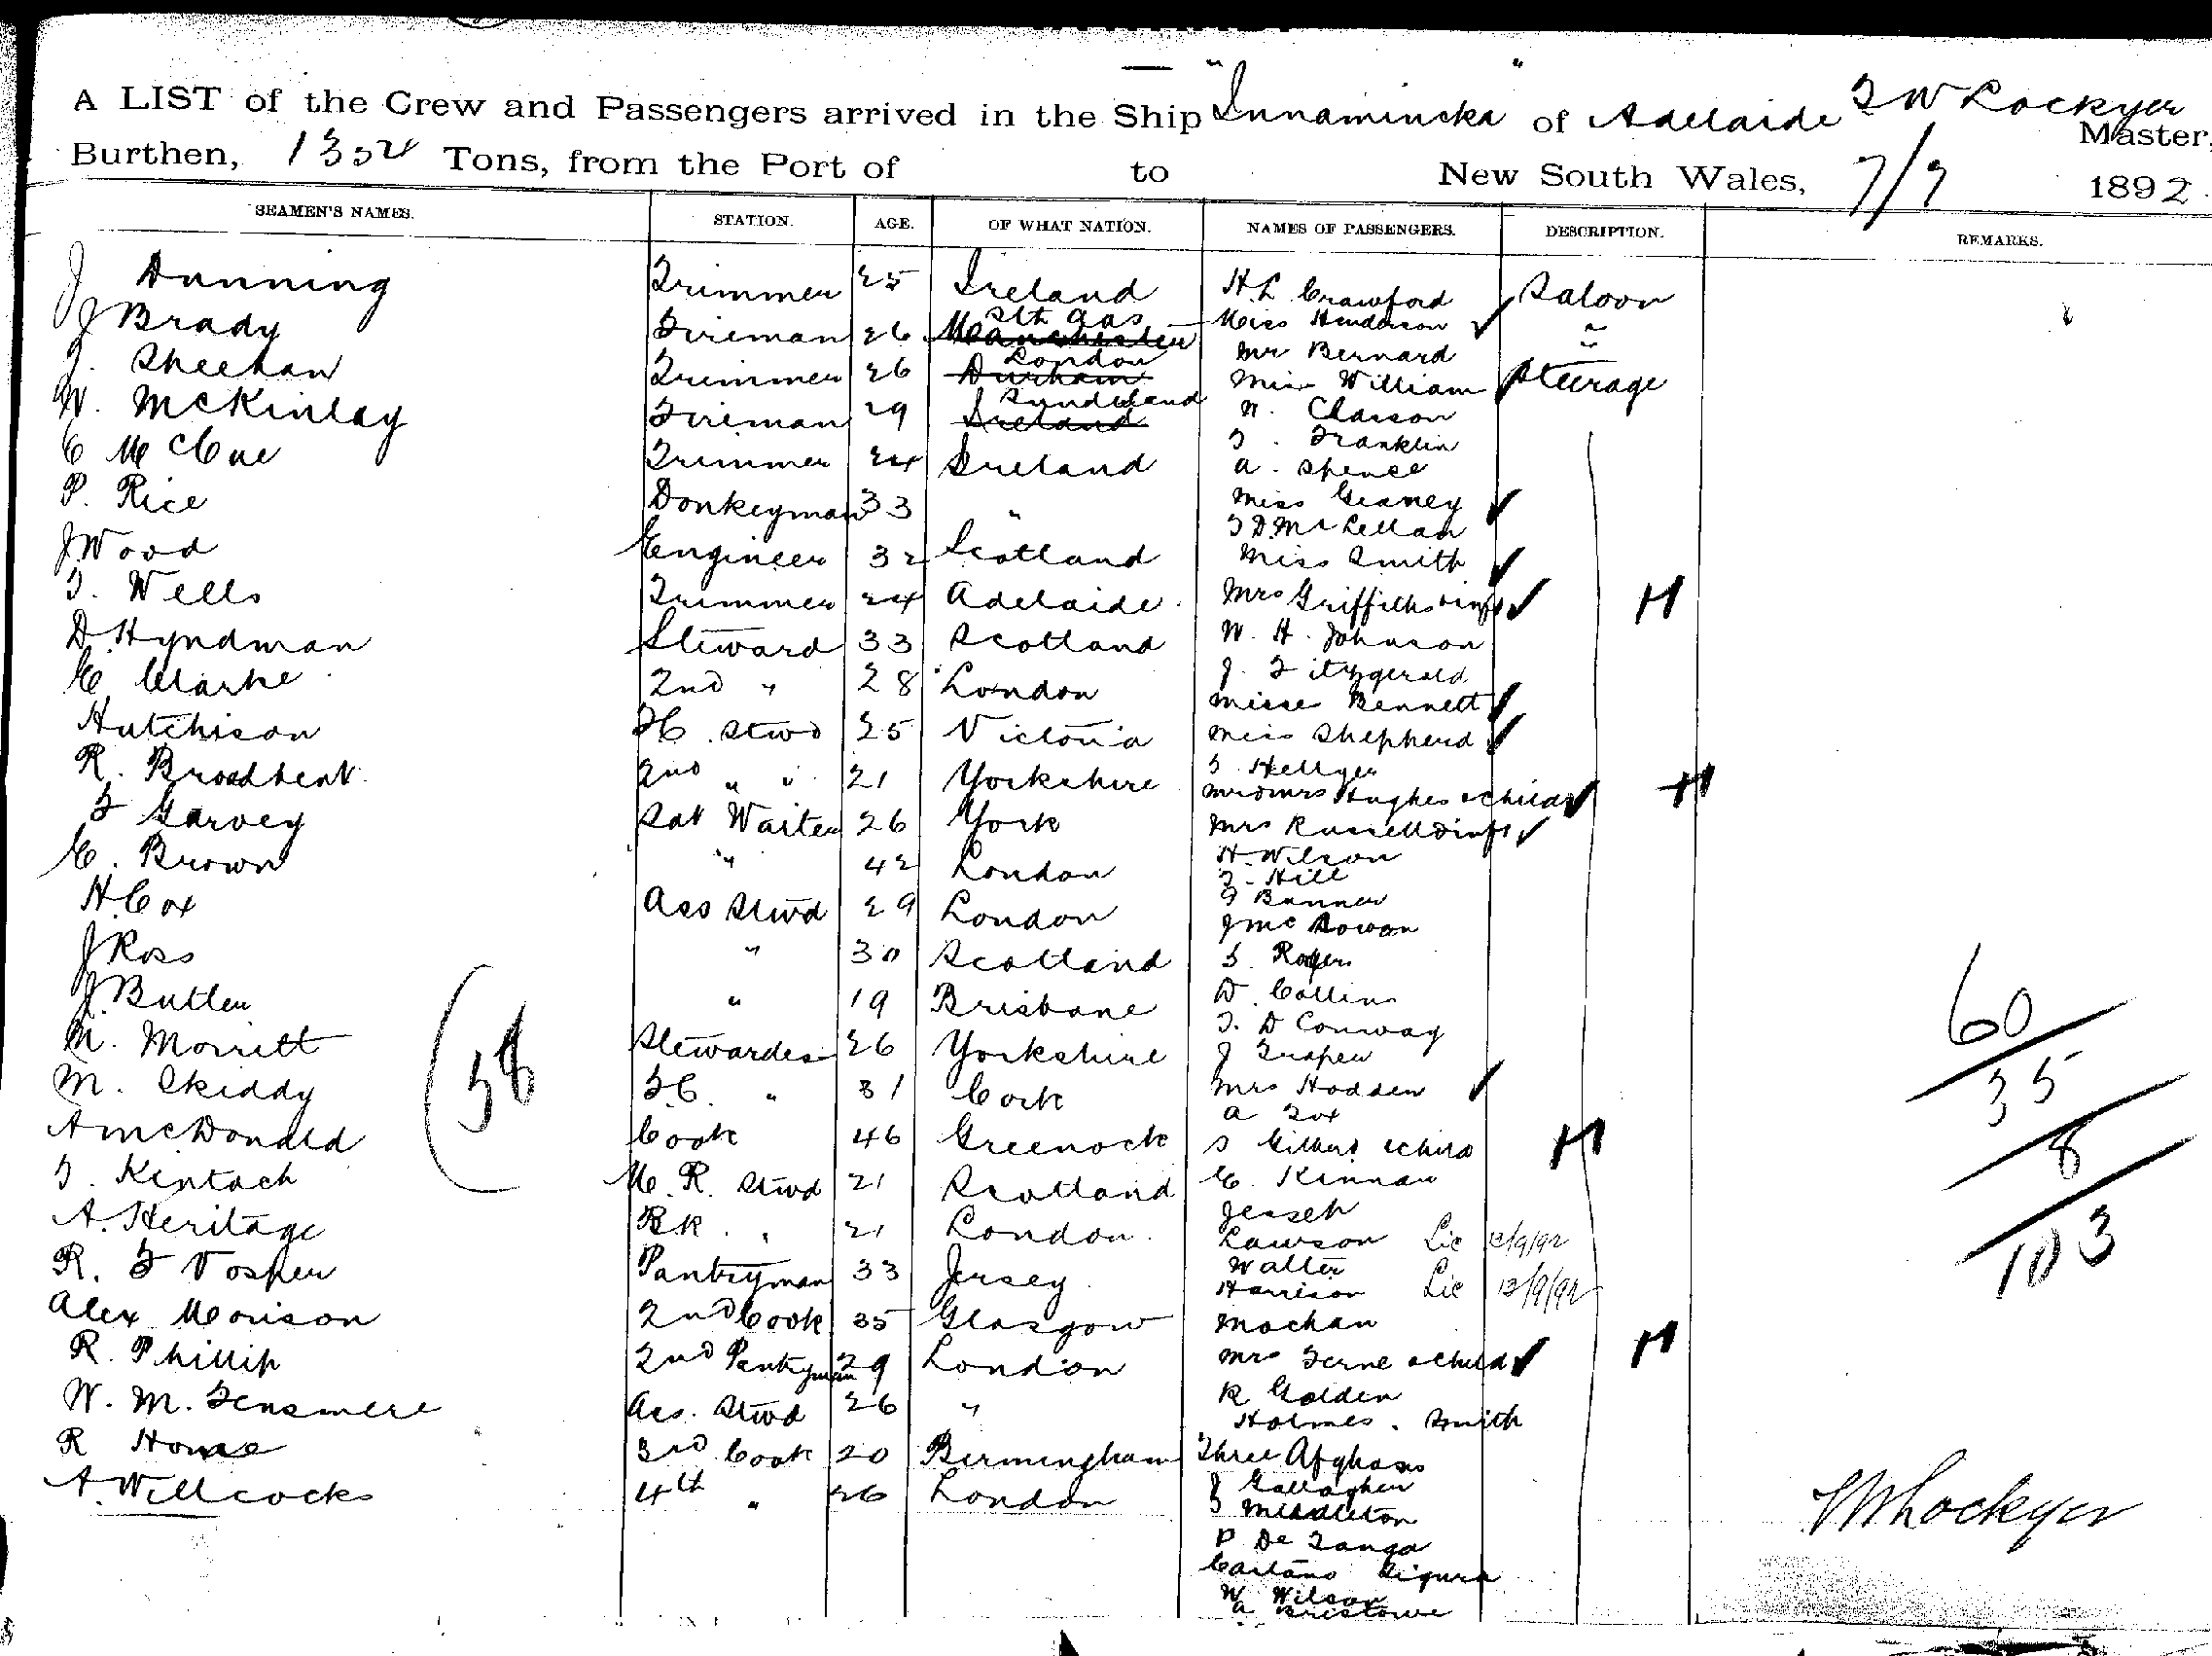 A LIST of the Crew and Passengers arrived in the Ship "Innamincka" of Adelaide T W Lockyer Master,
Burthen, 1352 Tons, from the Port of to New South Wales, 7/9 1892.
SEAMEN'S NAMES. STATION. AGE. OF WHAT NATION. NAMES OF PASSENGERS. DESCRIPTION. REMARKS.
J Dunning Trimmer 25 Ireland H L Crawford Saloon
J Brady Fireman 26 Manchester Sth Aas Miss Henderson "
J. Sheehan Trimmer 26 Durham London Mr Bernard "
W. McKinlay Fireman 29 Ireland Sunderland Miss William Steerage
N. Classon
T. Franklin
C McCue Trimmer 24 Ireland A. Spence
P. Rice Donkeyman 33 " Miss Geaney
T D McLellan
J Wood Engineer 32 Scotland Miss Smith
T. Wells Trimmer 24 Adelaide. Mrs Griffiths & inft H
D Hyndman Steward 33 Scotland W. H. Johnson
J. Fitzgerald
C Clarke 2nd " 28 London Misse Bennett
Hutchison FC. Stwd 25 Victoria Miss Shepherd
R. Broadbent 2nd " " 21 Yorkshire T Hellyer
Mr & Mrs Hughes & child H
T Garvey Sal Waiter 26 York Mrs Russell & inft
C. Brown " 42 London H. Wilson
T. Hill
H Cox Ass Stwd 29 London G Banner
J McGowan
J Ross " 30 Scotland S. Rogers
J. Butler " 19 Brisbane D. Collins
T. D Conway
M. Morritt Stewardess 26 Yorkshire J Draper
M. Skiddy FC. " 31 Cork Mrs Hodden
A Fox
A McDonald Cook 46 Greenock S Gilbert & child H
T. Kintoch M. R. Stwd 21 Scotland C. Kinnan
A. Heritage BR. " 21 London. Jessen
Lawson Lic 12/9/92
R. F Vosper Pantryman 33 Jersey Walter
Harrison Lic 12/9/92
Alex Morison 2nd Cook 35 Glasgow Mochan
R. Phillip 2nd Pantryman 29 London Mrs Ferne & child H
W. M. Fensmere Ass. Stwd 26 " R Golden
Holmes. Smith
R Howse 3rd Cook 20 Birmingham Three Afghans
A. Willcocks 4th " 26 London J Gallagher
T Middleton
P De Tanga
Caetano Figura
W Wilson
A Bristowe
58
60
35
8
103
T W Lockyer